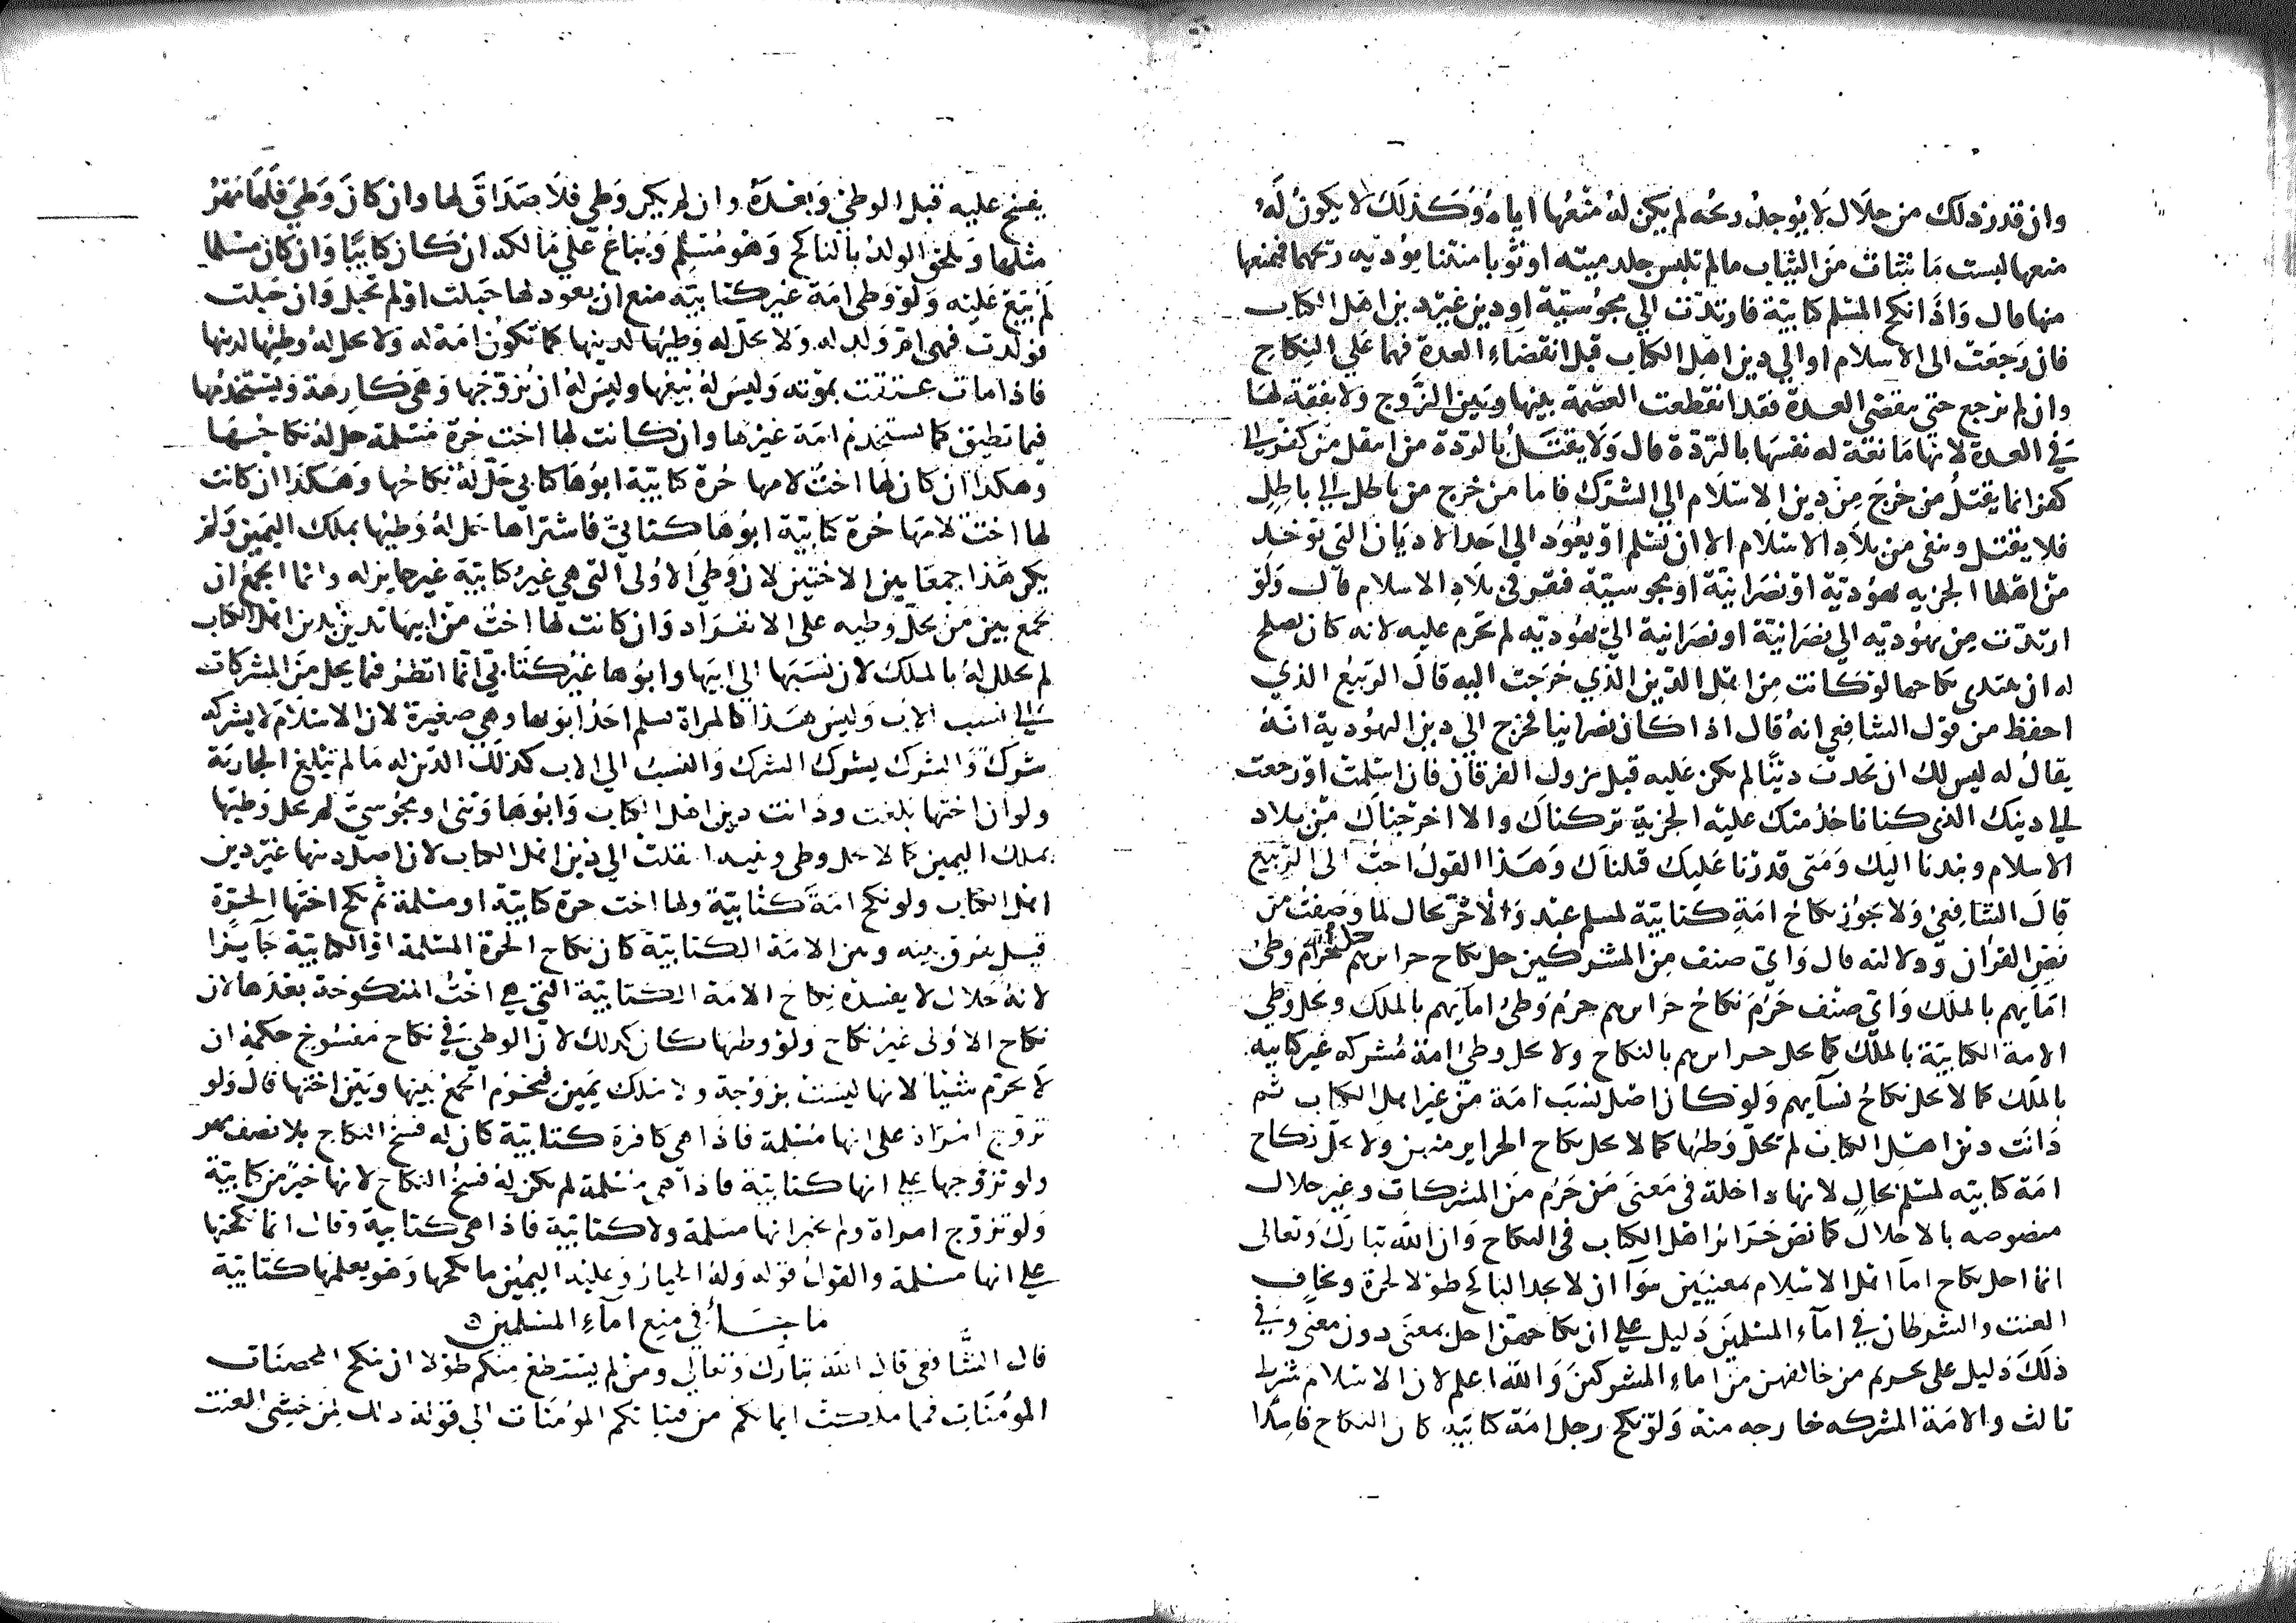 وان قدر ذلك من حلال لا يوجد ريحه لم يكن له منعها اياه وكذلك لا يكون له
منعها لبس ما شات من الثياب ما لم تلبس جلد ميته او ثوبا منتنا يؤذيه ريحهما فيمنعها
منها قال واذا نكح المسلم كتابية فارتدت الي مجوسية او دين غير دين اهل الكتاب
فان رجعت الى الاسلام او الي دين اهل الكتاب قبل انقضاء العدة فهما علي النكاح
وان لم ترجع حتي تنقضي العدة فقد انقطعت العصمة بينها وبين الزوج ولا نفقة لها
في العدة لانها مانعة له نفسها بالردة قال ولا يقتل بالردة من انتقل من كفر الي
كفر انما يقتل من خرج من دين الاسلام الي الشرك فاما من خرج من باطل الي باطل
فلا يقتل وينفى من بلاد الاسلام الا ان يسلم او يعود الي احد الاديان التي توخذ
من اهلها الجزيه يهودية او نصرانية او مجوسية فيقر في بلاد الاسلام قال ولو
ارتدت من يهوديه الي نصرانية او نصرانية الي يهوديه لم تحرم عليه لانه كان يصلح
له ان يبتدى نكاحها لو كانت من اهل الدين الذي خرجت اليه قال الربيع الذي
احفظ من قول الشافعي انه قال اذا كان نصرانيا فخرج الي دين اليهودية انه
يقال له ليس لك ان تحدث دينا لم تكن عليه قبل نزول الفرقان فان اسلمت او رجعت
الي دينك الذي كنا ناخذ منك عليه الجزية تركناك والا اخرجناك من بلاد
الاسلام ونبذنا اليك ومتى قدرنا عليك قتلناك وهذا القول احب الى الربيع
قال الشافعي ولا يجوز نكاح امة كتابية لمسلم عبد ولا حر بحال لما وصفت من
نص القران ودلالته قال واي صنف من المشركين حل نكاح حرايرهم حل وطئ
امايهم بالملك واي صنف حرم نكاح حرايرهم حرم وطئ امايهم بالملك ويحل وطي
الامة الكتابية بالملك كما تحل حرايرهم بالنكاح ولا يحل وطي امة مشركه غير كتابيه
بالملك كما لا يحل نكاح نسايهم ولو كان اصل نسب امة من غير اهل الكتاب ثم
دانت دين اهل الكتاب لم يحل وطئها كما لا يحل نكاح الحراير منهن ولا يحل نكاح
امة كتابيه لمسلم بحال لانها داخلة في معنى من حرم من المشركات وغير حلال
منصوصه بالاحلال كما نص حراير اهل الكتاب في النكاح وان الله تبارك وتعالى
انما احل نكاح اما اهل الاسلام بمعنيين سوآ ان لا يجد الناكح طولا لحرة ويخاف
العنت والشرطان في امآء المسلمين دليل علي ان نكاحهن احل بمعنى دون معنى وفي
ذلك دليل على تحريم من خالفهن من اماء المشركين والله اعلم لان الاسلام شرط
ثالث والامة المشركه خارجه منه ولو نكح رجل امة كتابية كان النكاح فاسدا
يفسخ عليه قبل الوطئ وبعده وان لم يكن وطي فلا صداق لها وان كان وطي فلها مهر
مثلها ويلحق الولد بالناكح وهو مسلم ويباع علي مالكه ان كان كتابيا وان كان مسلما
لم يبع عليه ولو وطى امة غير كتابيه منع ان يعود لها حبلت او لم تحبل وان حبلت
فولدت فهي ام ولد له ولا يحل له وطئها لدينها كما تكون امة له ولا يحل له وطئها لدينها
فاذا مات عتقت بموته وليس له بيعها وليس له ان يزوجها وهي كارهة ويستخدمها
فيما تطيق كما يستخدم امة غيرها وان كانت لها اخت حرة مسلمة حل له نكاحها
وهكذا ان كان لها اخت لامها حرة كتابية ابوها كتابي حل له نكاحها وهكذا ان كانت
لها اخت لامها حرة كتابية ابوها كتابي فاشتراها حل له وطيها بملك اليمين ولم
يكن هذا جمعا بين الاختين لان وطي الاولى التي هي غير كتابية غير جايز له وانما الجمع ان
يجمع بين من يحل وطيه على الانفراد وان كانت لها اخت من ابيها تدين بدين اهل الكتاب
لم تحلل له بالملك لان نسبها الي ابيها وابوها غير كتابي انما انظر فيما يحل من المشركات
الي نسب الاب وليس هذا كالمراة يسلم احد ابويها وهي صغيرة لان الاسلام لا يشركه
شرك والشرك يشرك الشرك والنسب الي الاب كذلك الدين له ما لم تبلغ الجارية
ولو ان اختها بلغت ودانت دين اهل الكتاب وابوها وثني او مجوسي لم يحل وطيها
بملك اليمين كما لا يحل وطي وثنية انتقلت الي دين اهل الكتاب لان اصل دينها غير دين
اهل الكتاب ولو نكح امة كتابية ولها اخت حرة كتابية او مسلمة ثم نكح اختها الحرة
قبل يفرق بينه وبين الامة الكتابية كان نكاح الحرة المسلمة او الكتابية جآيزا
لانه حلال لا يفسده نكاح الامة الكتابية التي هي اخت المنكوحة بعدها لان
نكاح الاولى غير نكاح ولو وطيها كان كذلك لان الوطي في نكاح مفسوخ حكمه ان
لا يحرم شيئا لانها ليست بزوجة ولا ملك يمين فيحرم الجمع بينها وبين اختها قال ولو
تزوج امراة على انها مسلمة فاذا هي كافرة كتابية كان له فسخ النكاح بلا نصف مهر
ولو تزوجها علي انها كتابية فاذا هي مسلمة لم يكن له فسخ النكاح لانها خير من كتابية
ولو تزوج امراة ولم يخبر انها مسلمة ولا كتابية فاذا هي كتابية وقال انما نكحتها
علي انها مسلمة والقول قوله وله الخيار وعليه اليمين ما نكحها وهو يعلمها كتابية
ما جاء في منع امآء المسلمين
قال الشافعي قال الله تبارك وتعالي ومن لم يستطع منكم طولا ان ينكح المحصنات
المؤمنات فمما ملكت ايمانكم من فتياتكم المؤمنات الي قوله ذلك لمن خشي العنت